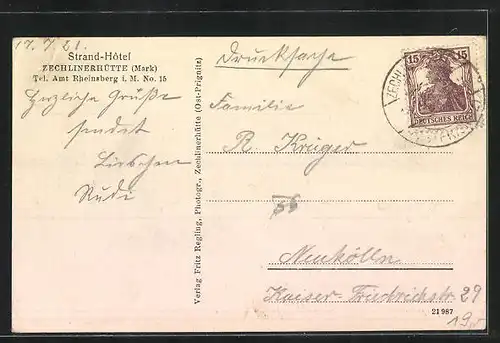 17.7.21.
Strand-Hôtel
ZECHLINERHÜTTE (Mark)
Tel. Amt Rheinsberg i. M. No. 15
Herzliche Grüße
sendet
Lieschen
Rudi
Verlag Fritz Regling, Photogr., Zechlinerhütte (Ost-Prignitz)
Drucksache
Familie
R. Krüger
Neukölln
Kaiser-Friedrichstr 29
21987
15 15
DEUTSCHES REICH